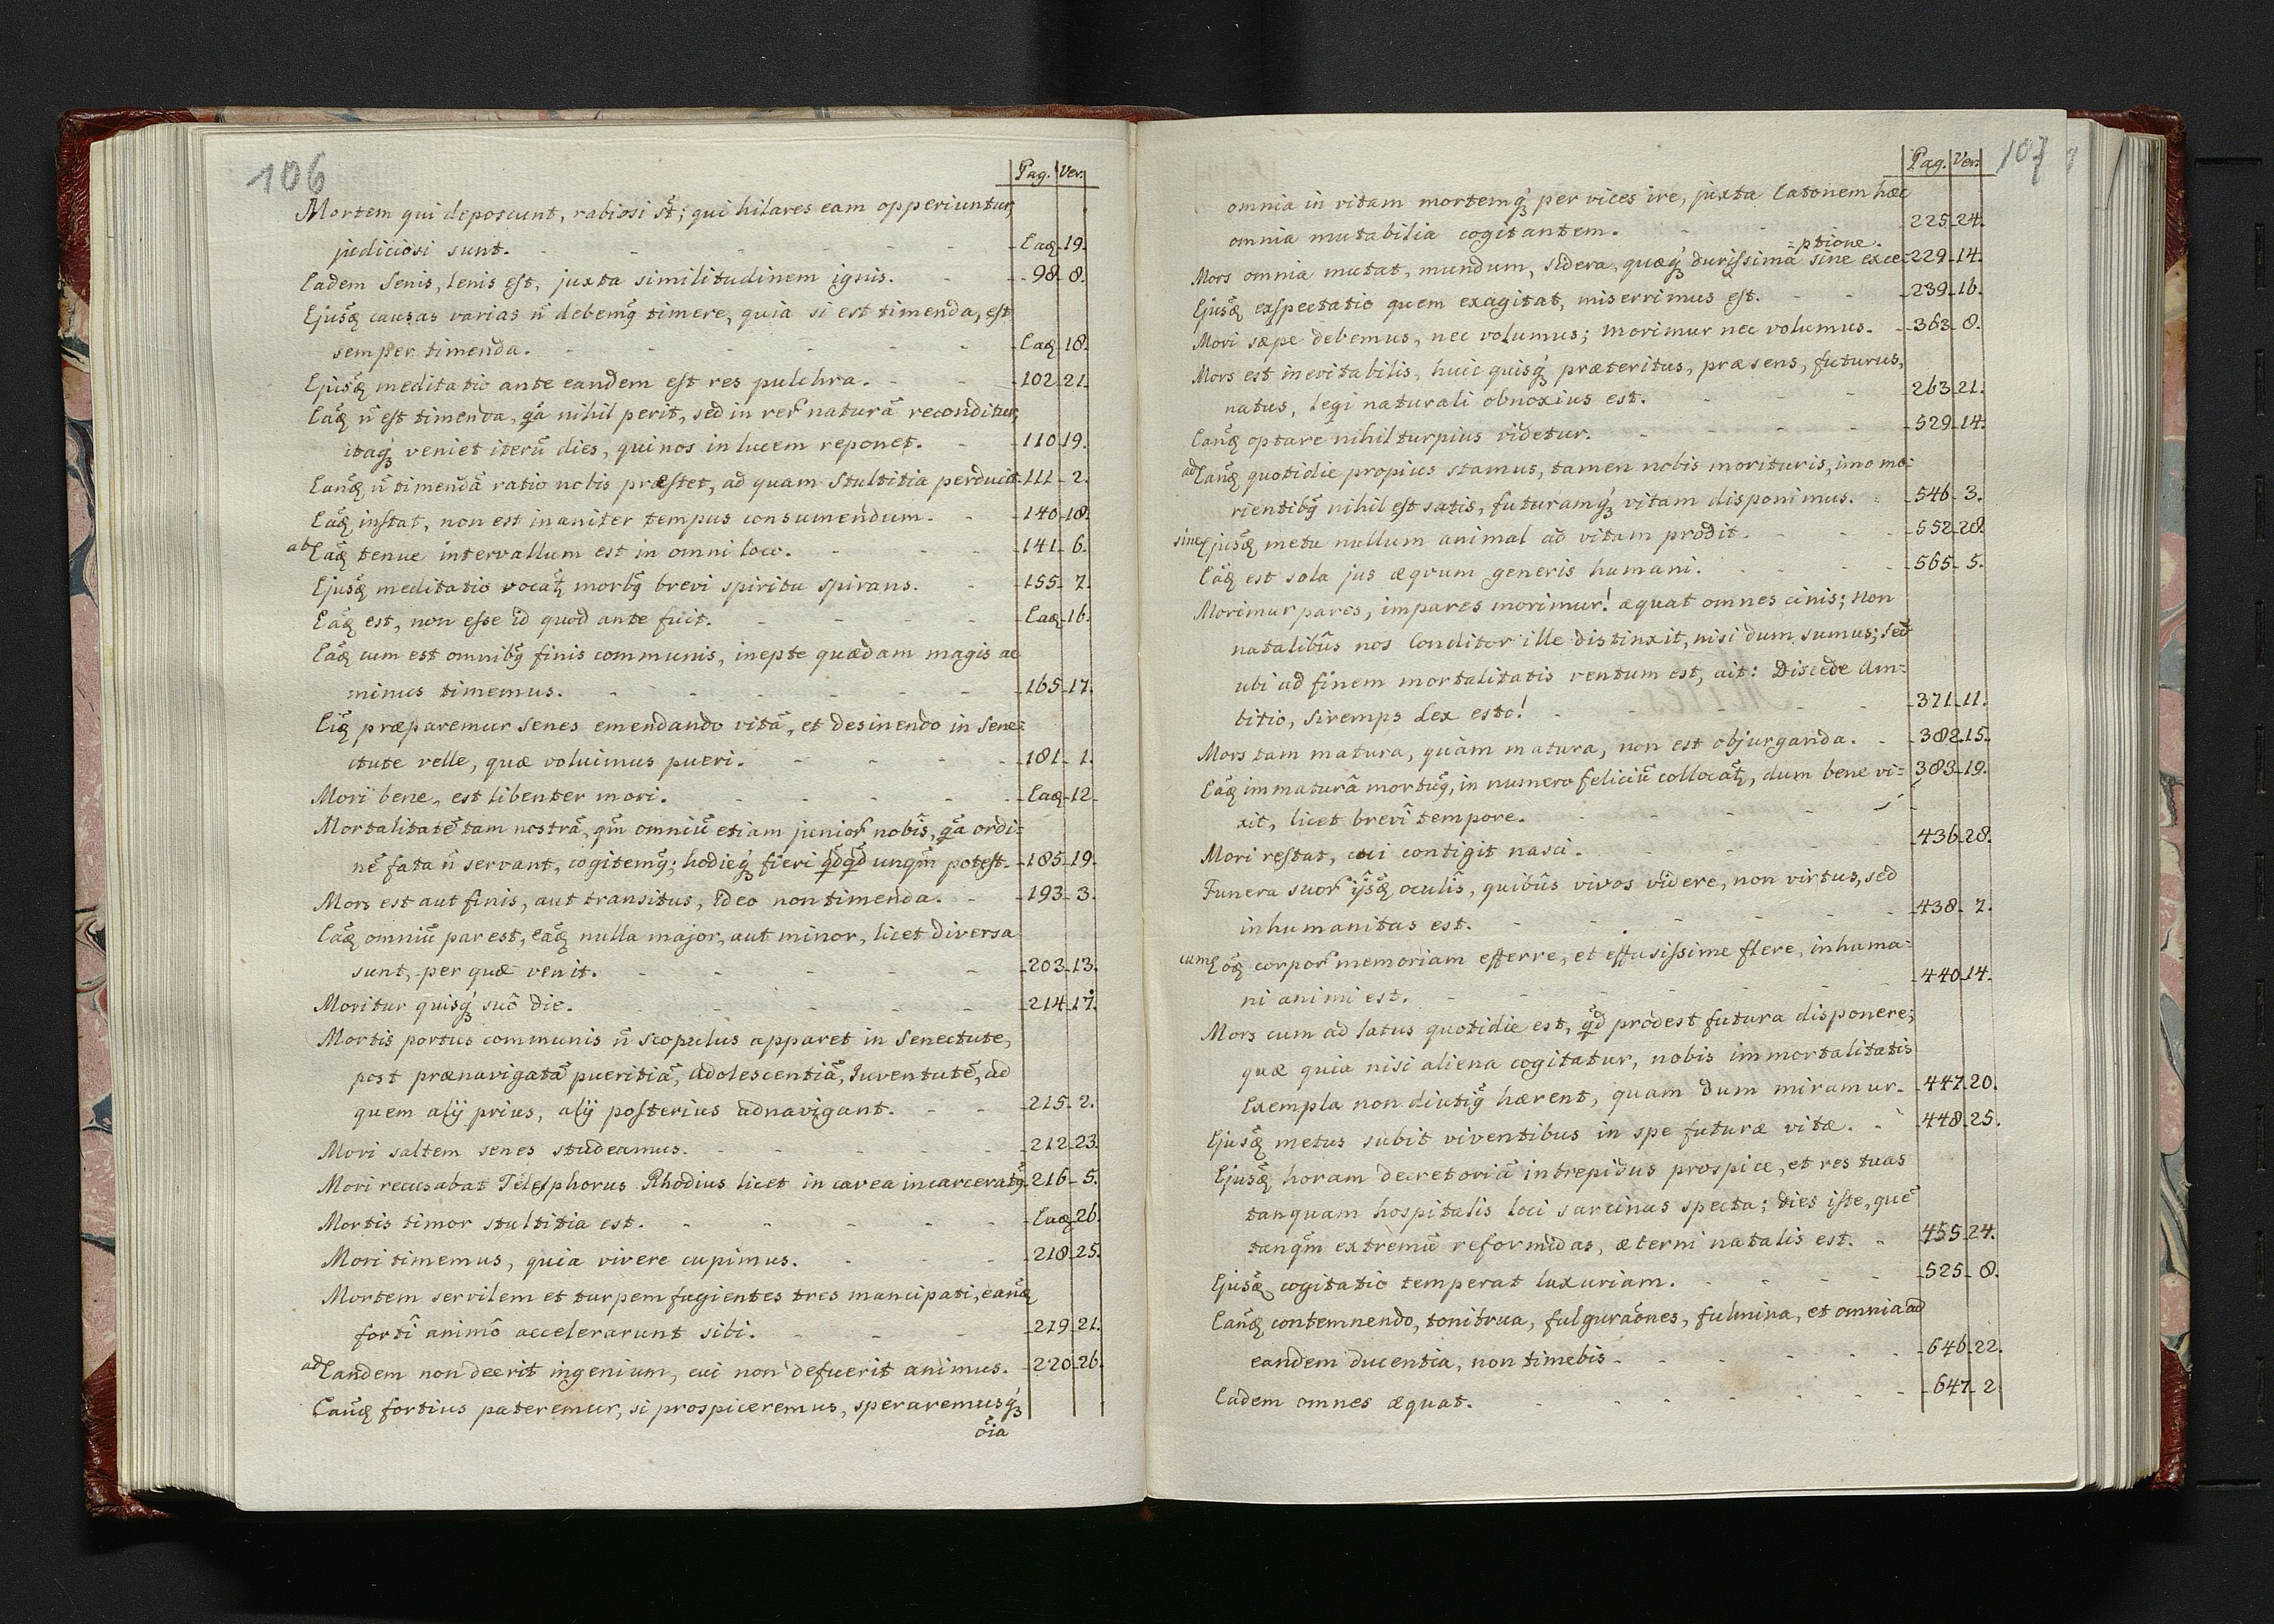 106
Pag. Ver.
Mortem qui deposcunt, rabiosi st̃; qui hilares eam opperiuntur,
judiciosi sunt. - Eaq̃ 19.
Eadem Senis, lenis est, juxta similitudinem ignis. - 98. 8.
Ejusq̃ causas varias ñ debemq̃ timere, quia si est timenda, est
semper timenda. - Eaq̃ 18.
Ejusq̃ meditatio ante eandem est res pulchra. - 102. 21.
Eaq̃ ñ est timenda, qã nihil perit, sed in rer̃ naturâ reconditur,
itaq́ veniet iterũ dies, qui nos in lucem reponet. - 110. 19.
Eanq̃ ñ timendã ratio nobis præstet, ad quam Stultitia perducit. 111. 2.
Eaq̃ instat, non est inaniter tempus consumendum. - 140. 18.
ab Eaq̃ tenue intervallum est in omni loco. - 141. 6.
Ejusq̃ meditatio vocat̃ morbq̃ brevi spiritu spirans. - 155. 7.
Eaq̃ est, non esse id quod ante fuit. - Eaq̃ 16.
Eaq̃ cum est omnibq̃ finis communis, inepte quædam magis ac
minus timemus. - 165. 17.
Eiq̃ præparemur senes emendando vitã, et desinendo in Sene=
ctute velle, quæ voluimus pueri. - 181. 1.
Mori bene, est libenter mori. - Eaq̃ 12.
Mortalitatẽ tam nostrã, qm̃ omniũ etiam junior̃ nobîs, qã ordi=
nẽ fata ñ servant, cogitemq̃; hodieq́ fieri qd̃qd̃ unqm̃ potest. - 185. 19.
Mors est aut finis, aut transitus, ideo non timenda. - 193. 3.
Eaq̃ omniũ par est, eaq̃ nulla major, aut minor, licet diversa
sunt, per quæ venit. - 203. 13.
Moritur quisq́ suô die. - 214. 17.
Mortis portus communis ñ scopulus apparet in Senectute,
post prænavigatã pueritiã, adolescentiã, Iuventutẽ, ad
quem alÿ prius, alÿ posterius adnavigant. - 215. 2.
Mori saltem senes studeamus. - 212. 23.
Mori recusabat Telesphorus Rhodius licet in cavea incarceratq̃. 216. 5.
Mortis timor stultitia est. - Eaq̃ 26.
Mori timemus, quia vivere cupimus. - 218. 25.
Mortem servilem et turpem fugientes tres mancipati, eanq̃
fortî animô accelerarunt sibi. - 219. 21.
ad Eandem non deerit ingenium, cui non defuerit animus. - 220. 26.
Eanq̃ fortius pateremur, si prospiceremus, speraremusq́
õia
107
Pag. Ver.
omnia in vitam mortemq́ per vices ire, juxta Catonem hæc
omnia mutabilia cogitantem. - 225. 24.
=ptione.
Mors omnia mutat, mundum, sidera, quæq́ durissima sine exce= 229. 14.
Ejusq̃ exspectatio quem exagitat, miserrimus est. - 239. 16.
Mori sæpe debemus, nec volumus; morimur nec volumus. - 363. 8.
Mors est inevitabilis, huic quisq́ præteritus, præsens, futurus,
natus, legi naturali obnoxius est. - 263. 21.
Eanq̃ optare nihil turpius videtur. - 529. 14.
ad Eanq̃ quotidie propius stamus, tamen nobis morituris, imo mo=
rientibq̃ nihil est satis, futuramq́ vitam disponimus. - 546. 3.
sine Ejusq̃ metu nullum animal ad vitam prodit. - 552. 28.
Eaq̃ est sola jus æqvum generis humani. - 565. 5.
Morimur pares, impares morimur! æquat omnes cinis; non
natalibûs nos Conditor ille distinxit, nisi dum sumus; sed
ubi ad finem mortalitatis ventum est, ait: Discede Am=
bitio, siremps Lex esto! - 371. 11.
Mors tam matura, quàm matura, non est objurganda. - 382. 15.
Eaq̃ immaturâ mortuq̃, in numero feliciũ collocat̃, dum bene vi= 383. 19.
xit, licet brevî tempore.
Mori restat, cui contigit nasci. - 436. 28.
Funera suor̃ ÿsq̃ oculîs, quibûs vivos videre, non virtus, sed
inhumanitas est. - 438. 7.
cum Eoq̃ corpor̃ memoriam efferre, et effusissime flere, inhuma=
ni animi est. - 440. 14.
Mors cum ad latus quotidie est, qd̃ prodest futura disponere;
quæ quia nisi aliena cogitatur, nobis immortalitatis
Exempla non diutiq̃ hærent, quam dum miramur. - 447. 20.
Ejusq̃ metus subit viventibus in spe futuræ vitæ. - 448. 25.
Ejusq̃ horam decretoriã intrepidus prospice, et res tuas
tanquam hospitalis loci sarcinas specta; dies iste, quẽ
tanqm̃ extremũ reformidas, æterni natalis est. - 455. 24.
Ejusq̃ cogitatio temperat luxuriam. - 525. 8.
Eanq̃ contemnendo, tonitrua, fulguraões, fulmina, et omnia ad
eandem ducentia, non timebis. - 646. 22.
Eadem omnes æquat. - 647. 2